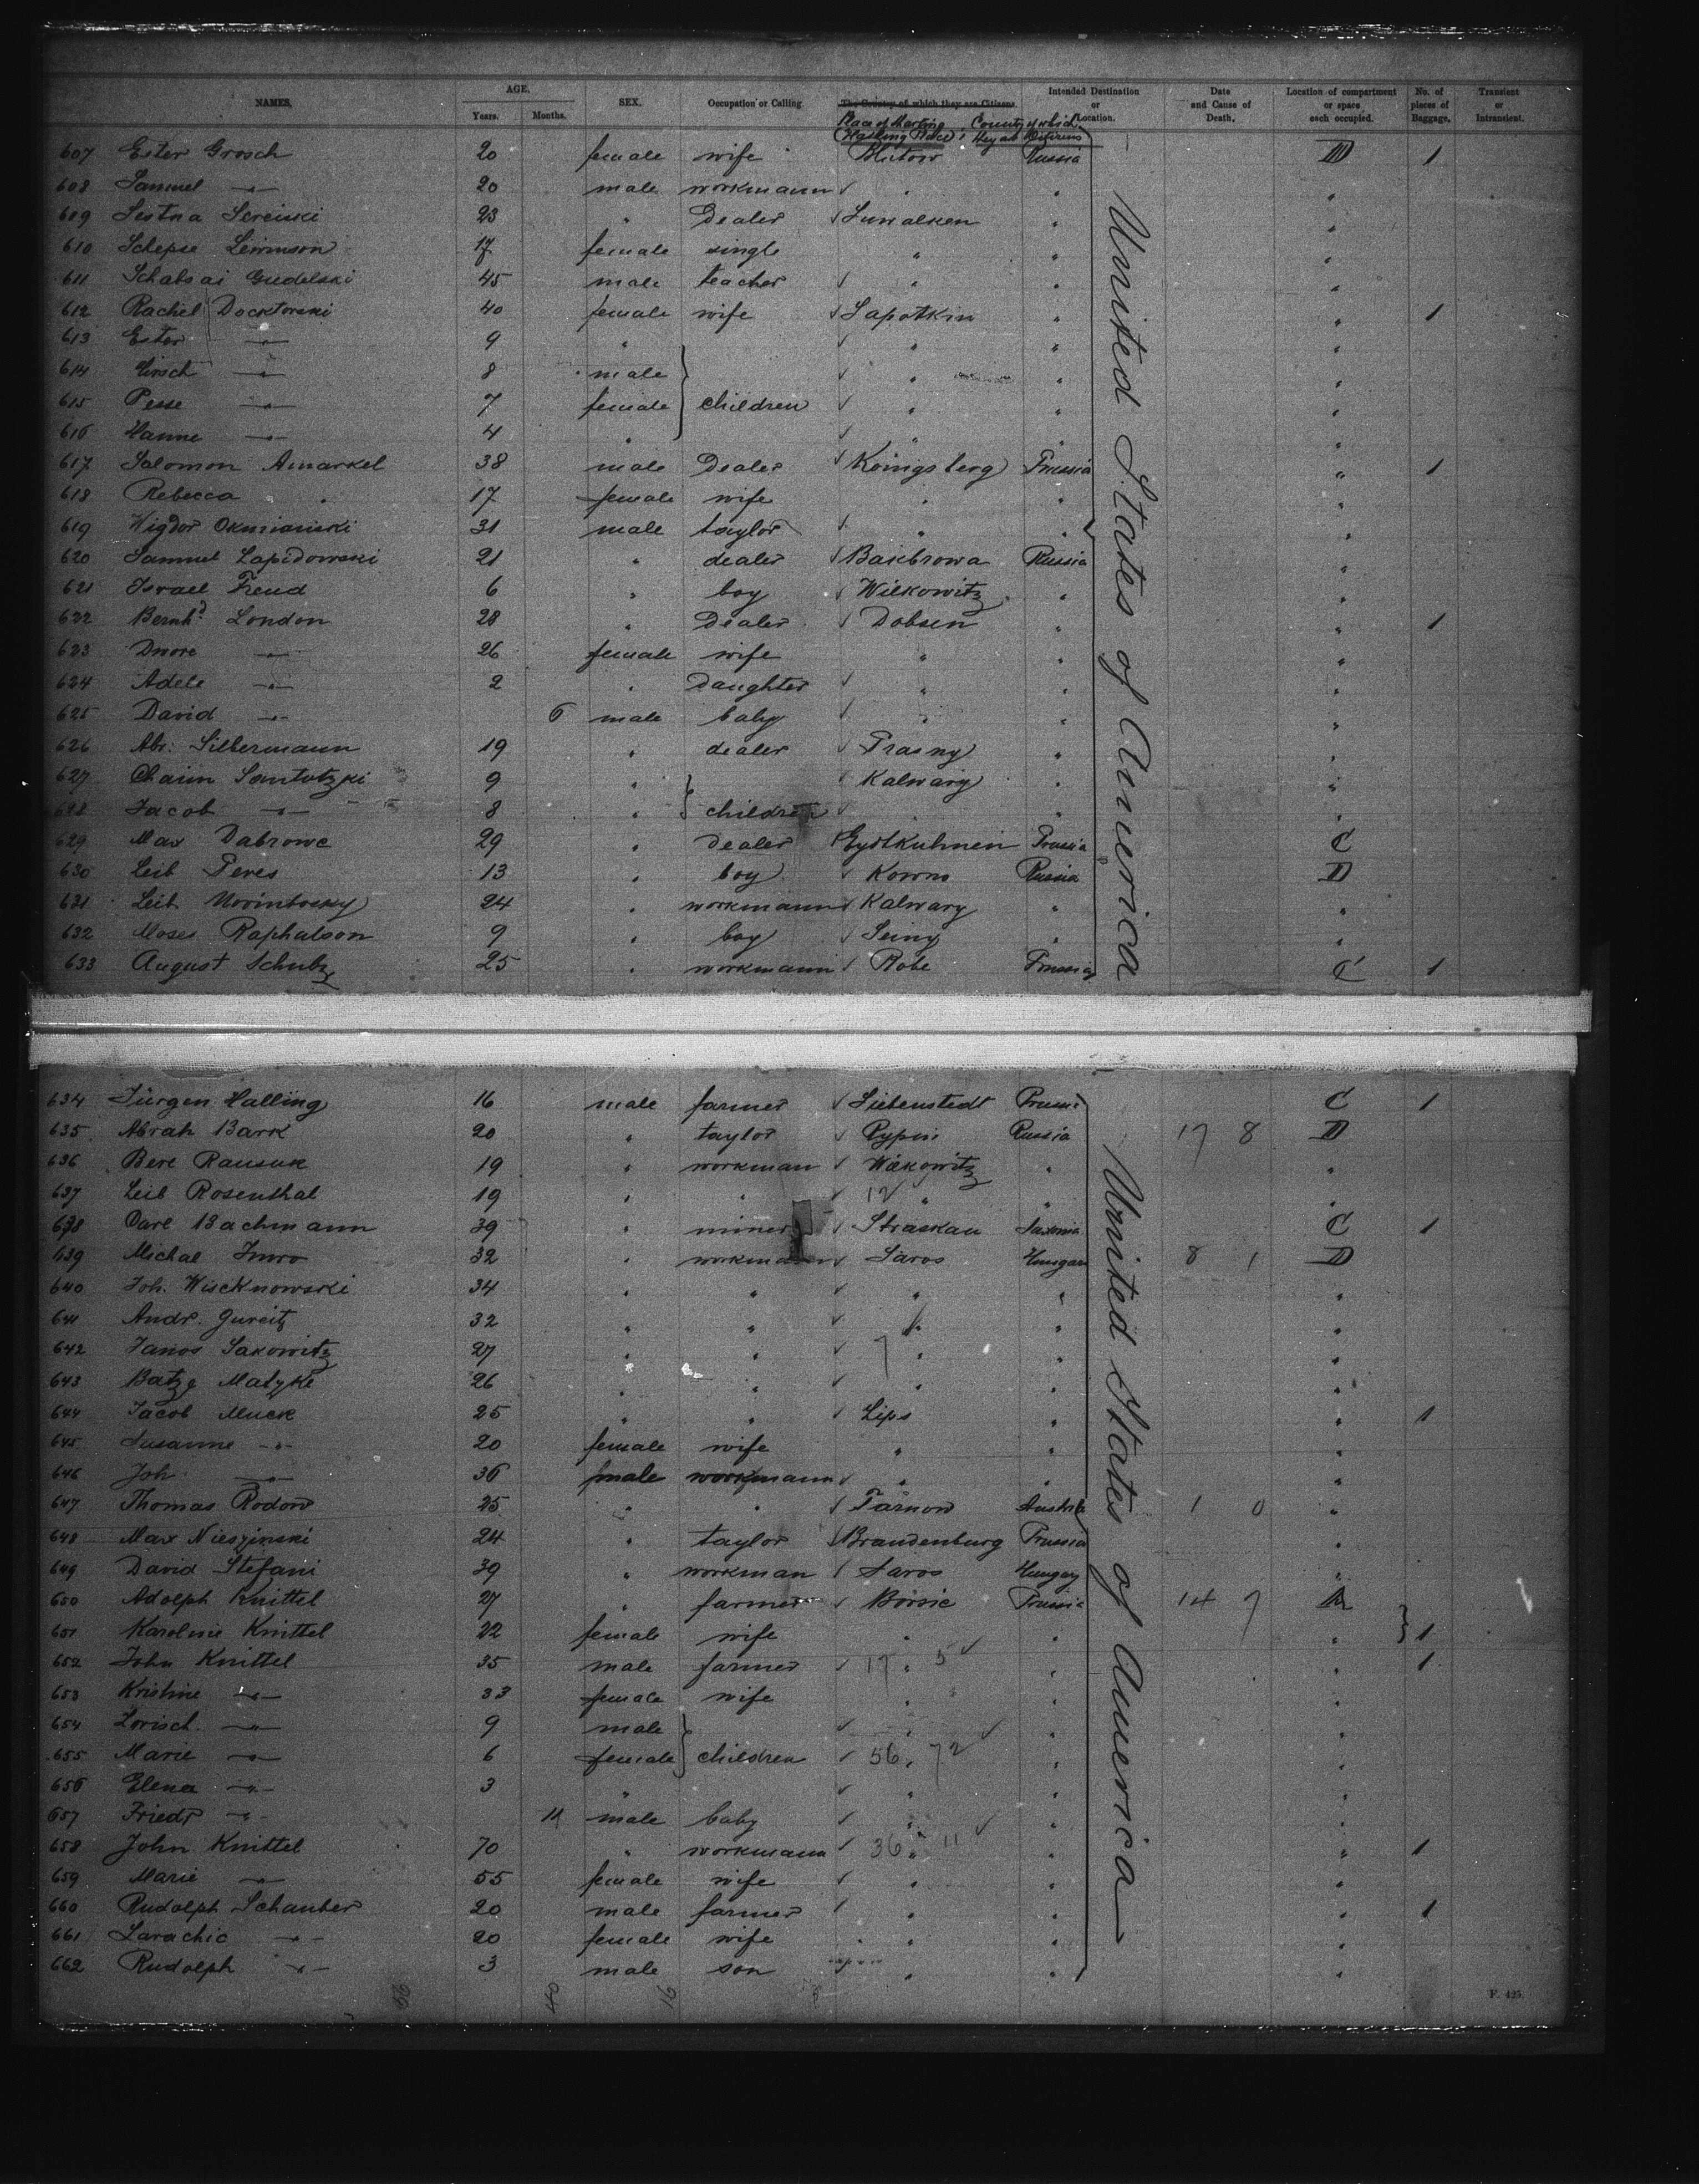 NAMES. AGE. Years. Months. SEX. Occupation or Calling The Country of which they are Citizens. Intended Destination or Location. Date and Cause of Death. Location of compartment or space each occupied. No. of pieces of Baggage. Transient or Intransient.
Place of Starting Country of which they are Citizens
607 Ester Grosch 20 female wife Russia D 1
608 Samuel —"— 20 male workmann ✓ " " "
609 Sereiski 23 " Dealer ✓ Sunalken " "
610 Schepse 17 female single " " "
611 Schabsai Gudelski 45 male teacher ✓ " " "
612 Rachel Docktorski 40 female wife ✓ Sapotkin " " 1
613 Ester —"— 9 " ✓ " " "
614 Hirsch —"— 8 male ✓ " " "
615 Pesse —"— 7 female children ✓ " " "
616 Hanne —"— 4 " ✓ " " "
617 Salomon Amarkel 38 male Dealer ✓ Koingsberg Prussia " 1
618 Rebecca " 17 female wife " " "
619 Wigdor Okmianski 31 male taylor ✓ " " "
620 Samuel Lapidowski 21 " dealer ✓ Bakbrowa Russia "
621 Israel Freud 6 " boy ✓ Wilkowitz " "
622 Bernhd London 28 " Dealer ✓ Dobsen " " 1
623 Dwore —"— 26 female wife " " "
624 Adele —"— 2 " Daughter ✓ " " "
625 David —"— 6 male baby ✓ " " "
626 Abr: Silbermann 19 " dealer ✓ Prasny " "
627 Chaim Santutzki 9 " ✓ Kalwary " "
628 Jacob —"— 8 " children ✓ " " "
629 Max Dabrowe 29 " Dealer Eydtkuhnen Prussia C
630 Leib Peres 13 " boy ✓ Kowno Russia D
631 Leib 24 " workmann ✓ Kalwary " "
632 Moses Raphalson 9 " boy ✓ Seiny " "
633 August Schulz 25 " workmann ✓ Robe Prussia C 1
United States of America
634 Jürgen Halling 16 male farmer ✓ Siebenstedt Prussia C 1
635 Abrah Bark 20 " taylor ✓ Rypin Russia 17 8 D
636 Bere Rausuk 19 " workman ✓ Wilkowitz " "
637 Leib Rosenthal 19 " " ✓ 12 ✓ " " "
638 Carl Bachmann 39 " miner ✓ Straskau Saxonia C 1
639 Michal Imro 32 " workmann ✓ Saros Hungary 8 1 D
640 Joh. Wischnowski 34 " " ✓ " " "
641 Andr. Gureitz 32 " " ✓ " " "
642 Janos Sakowitz 27 " " ✓ 7 " " "
643 Batze Matyke 26 " " ✓ " " "
644 Jacob Muck 25 " " ✓ Lips " " 1
645 Susanne —"— 20 female wife " " "
646 Joh —"— 36 male workmann ✓ " " "
647 Thomas Rodow 25 " " ✓ Tarnow Austria 1 0 "
648 Max Nieszinski 24 " taylor ✓ Brandenburg Prussia "
649 David Stefani 39 " workman ✓ Saros Hungary "
650 Adolph Knittel 27 " farmer ✓ Prussia 14 7
651 Karoline Knittel 22 female wife " " " 1
652 John Knittel 35 male farmer ✓ 17 " 5 ✓ " " 1
653 Kristine —"— 33 female wife " " "
654 —"— 9 male ✓ " ✓ " "
655 Marie —"— 6 female children ✓ 56 " 72 " "
656 Elena —"— 3 " ✓ " " "
657 Friedr —"— 11 male baby ✓ " " "
658 John Knittel 70 " workmann ✓ 36 " 11 ✓ " " 1
659 Marie —"— 55 female wife ✓ " " "
660 Rudolph Schauber 20 male farmer ✓ " " " 1
661 —"— 20 female wife " " "
662 Rudolph —"— 3 male son " " "
United States of America
F. 425.